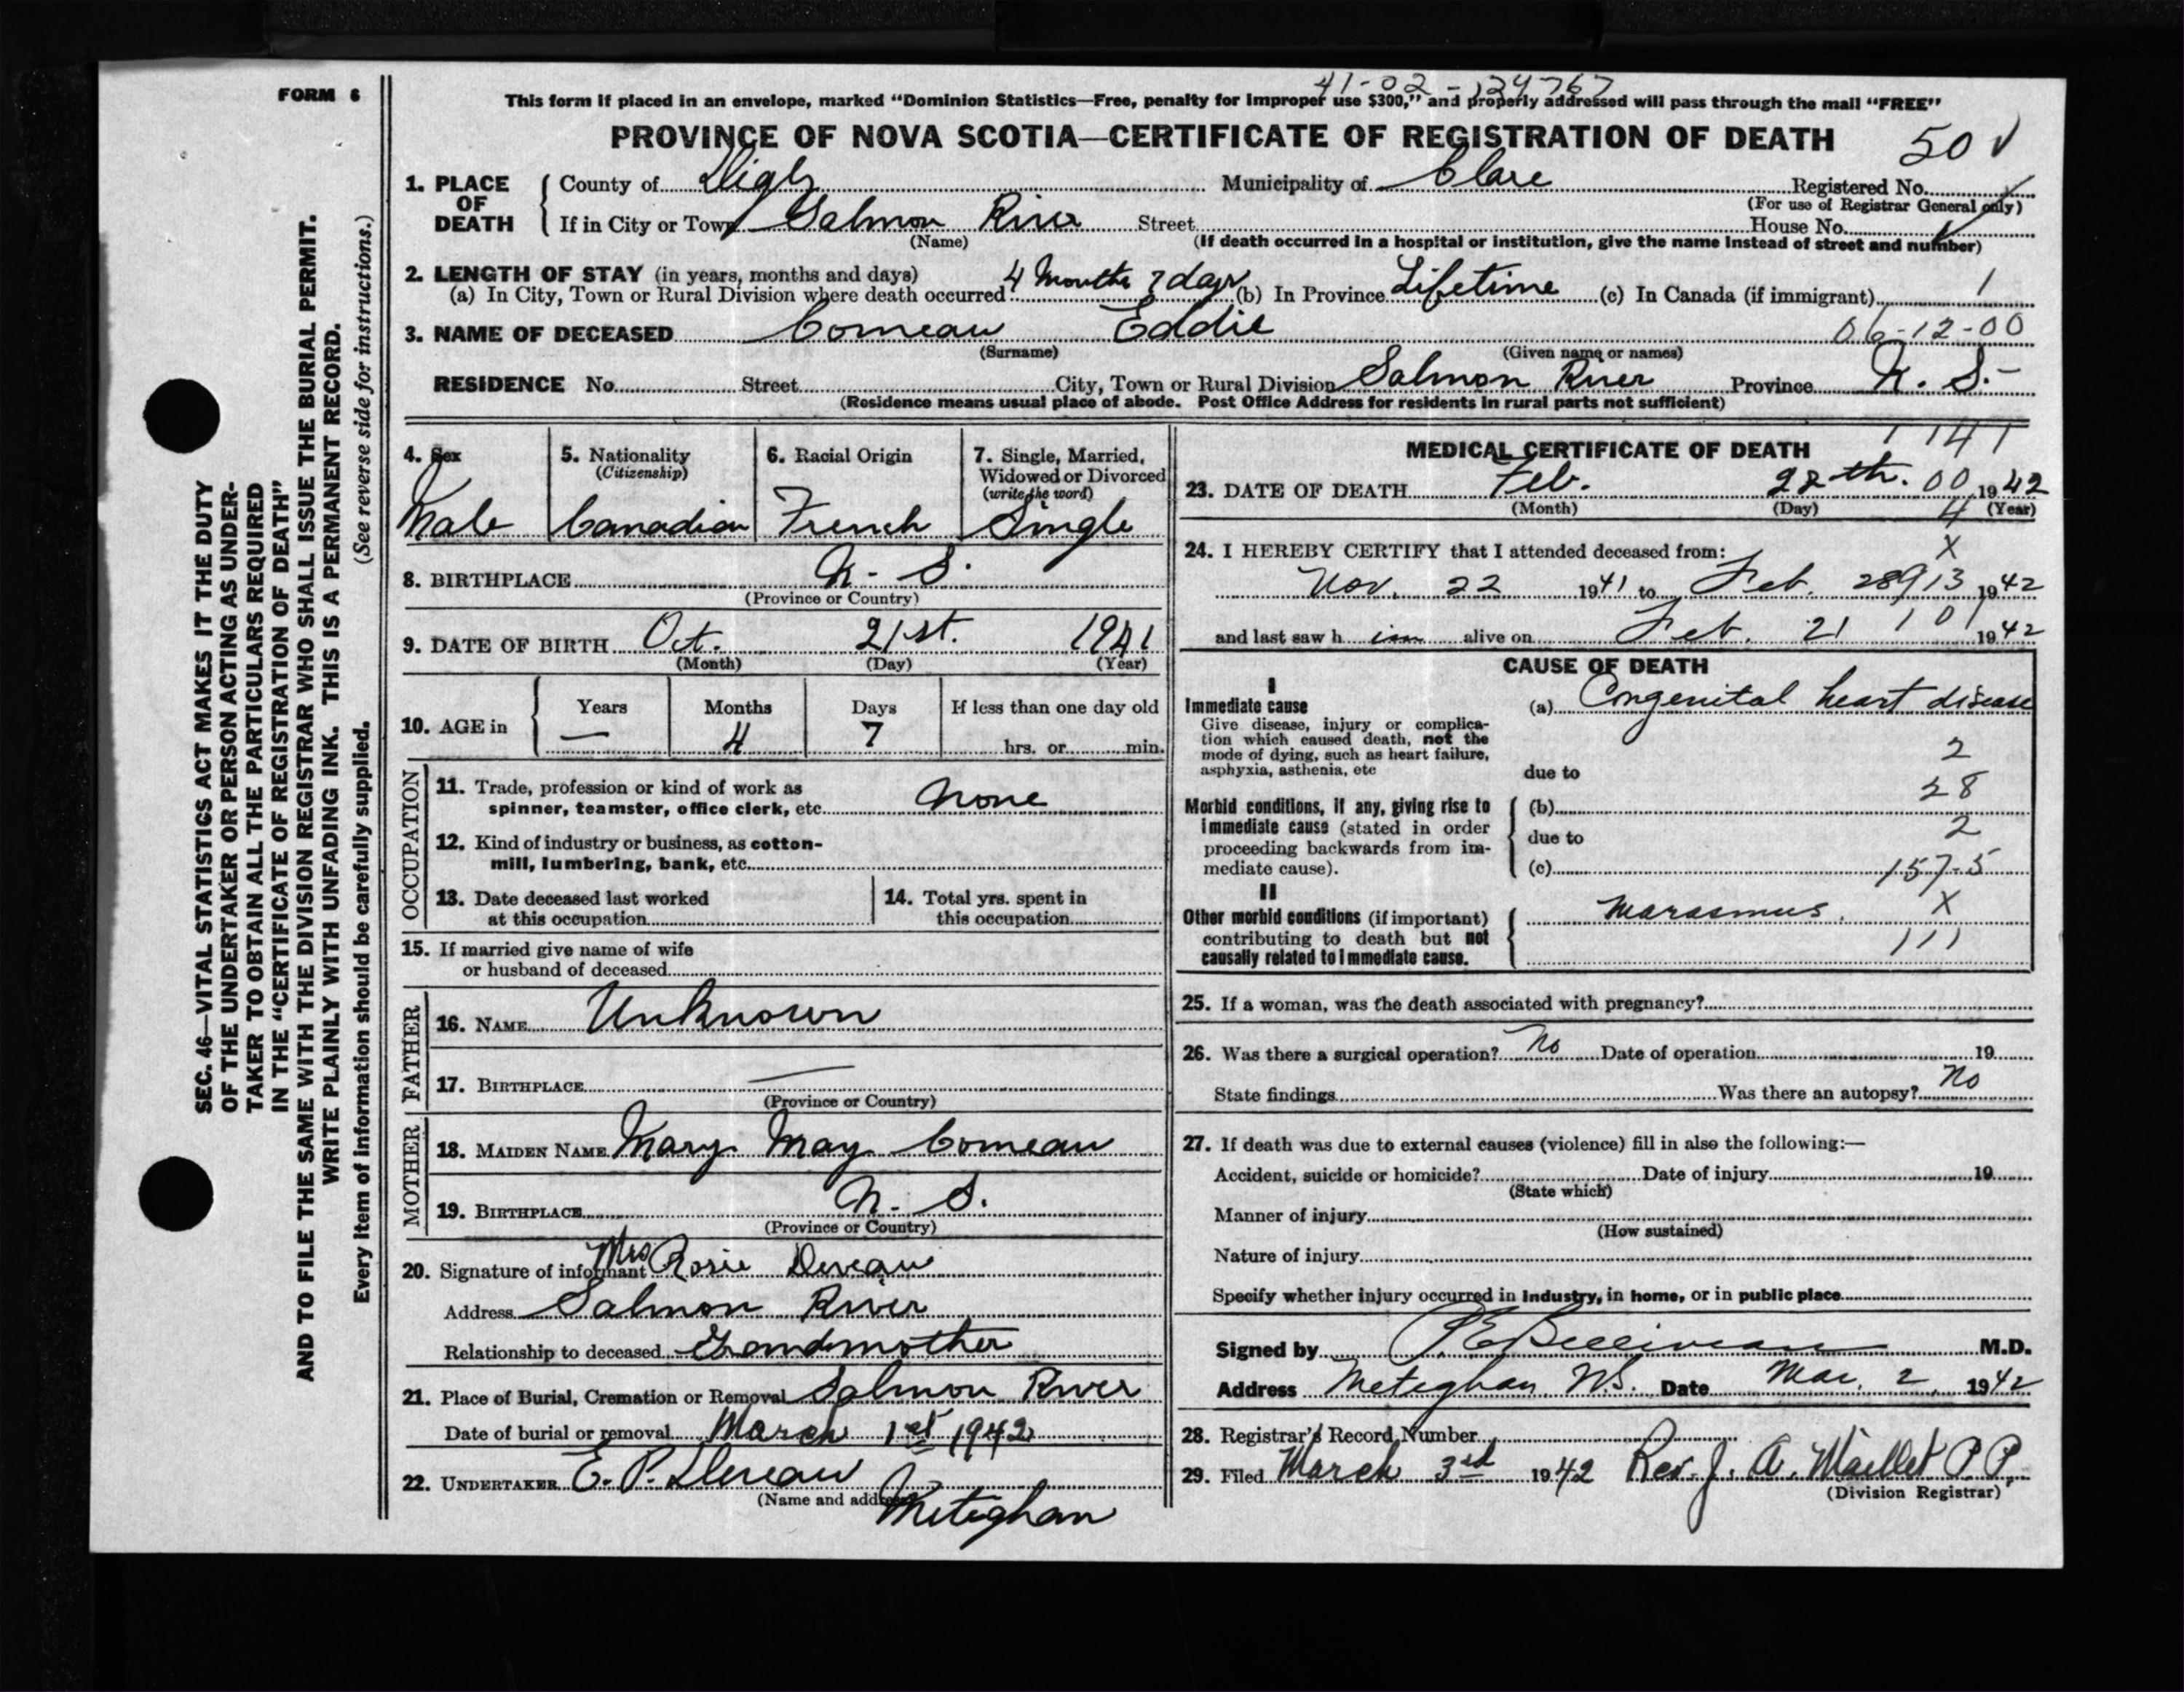 FORM 6
41-02-134767
This form if placed in an envelope, marked “Dominion Statistics—Free, penalty for improper use $300,” and properly addressed will pass through the mail “FREE”
PROVINCE OF NOVA SCOTIA—CERTIFICATE OF REGISTRATION OF DEATH
50 ✓
1. PLACE OF DEATH County of Digby Municipality of Clare Registered No.
(For use of Registrar General only)
If in City or Town Salmon River Street House No.
(Name) (If death occurred in a hospital or institution, give the name instead of street and number)
2. LENGTH OF STAY (in years, months and days)
(a) In City, Town or Rural Division where death occurred 4 Months 7 days (b) In Province Lifetime (c) In Canada (if immigrant) 1
3. NAME OF DECEASED Comeau Eddie 06-12-00
(Surname) (Given name or names)
RESIDENCE No. Street City, Town or Rural Division Salmon River Province N. S.-
(Residence means usual place of abode. Post Office Address for residents in rural parts not sufficient)
4. Sex Male
5. Nationality (Citizenship) Canadian
6. Racial Origin French
7. Single, Married, Widowed or Divorced (write the word) Single
8. BIRTHPLACE N. S.
(Province or Country)
9. DATE OF BIRTH Oct. 21st. 1941
(Month) (Day) (Year)
10. AGE in Years — Months 4 Days 7 If less than one day old hrs. or min.
OCCUPATION
11. Trade, profession or kind of work as
spinner, teamster, office clerk, etc. None
12. Kind of industry or business, as cotton-
mill, lumbering, bank, etc.
13. Date deceased last worked
at this occupation
14. Total yrs. spent in
this occupation
15. If married give name of wife
or husband of deceased
FATHER
16. NAME Unknown
17. BIRTHPLACE —
(Province or Country)
MOTHER
18. MAIDEN NAME Mary May Comeau
19. BIRTHPLACE N. S.
(Province or Country)
20. Signature of informant Mrs Rosie Deveau
Address Salmon River
Relationship to deceased Grandmother
21. Place of Burial, Cremation or Removal Salmon River
Date of burial or removal March 1st 1942
22. UNDERTAKER E. P. Deveau
(Name and address)
Meteghan
MEDICAL CERTIFICATE OF DEATH
1 141
23. DATE OF DEATH Feb. 28th. 00 1942
(Month) (Day) 4 (Year)
24. I HEREBY CERTIFY that I attended deceased from: X
Nov. 22 1941 to Feb. 28 913 1942
and last saw h im alive on Feb. 21 101 1942
CAUSE OF DEATH
I
Immediate cause (a) Congenital heart disease
Give disease, injury or complica-
tion which caused death, not the
mode of dying, such as heart failure,
asphyxia, asthenia, etc
2
due to
28
Morbid conditions, if any, giving rise to (b)
immediate cause (stated in order
2
proceeding backwards from im- due to
mediate cause). (c) 157-5
II
Other morbid conditions (if important) Marasmus. X
contributing to death but not 111
causally related to immediate cause.
25. If a woman, was the death associated with pregnancy?
26. Was there a surgical operation? No Date of operation 19
State findings Was there an autopsy? No
27. If death was due to external causes (violence) fill in also the following:—
Accident, suicide or homicide? Date of injury 19
(State which)
Manner of injury
(How sustained)
Nature of injury
Specify whether injury occurred in industry, in home, or in public place
Signed by P. E. Belliveau M.D.
Address Meteghan N.S. Date Mar. 2, 1942
28. Registrar's Record Number
29. Filed March 3rd 1942 Rev. J. A. Maillet P P.
(Division Registrar)
SEC. 46—VITAL STATISTICS ACT MAKES IT THE DUTY
OF THE UNDERTAKER OR PERSON ACTING AS UNDER-
TAKER TO OBTAIN ALL THE PARTICULARS REQUIRED
IN THE “CERTIFICATE OF REGISTRATION OF DEATH”
AND TO FILE THE SAME WITH THE DIVISION REGISTRAR WHO SHALL ISSUE THE BURIAL PERMIT.
WRITE PLAINLY WITH UNFADING INK. THIS IS A PERMANENT RECORD.
Every item of information should be carefully supplied. (See reverse side for instructions.)